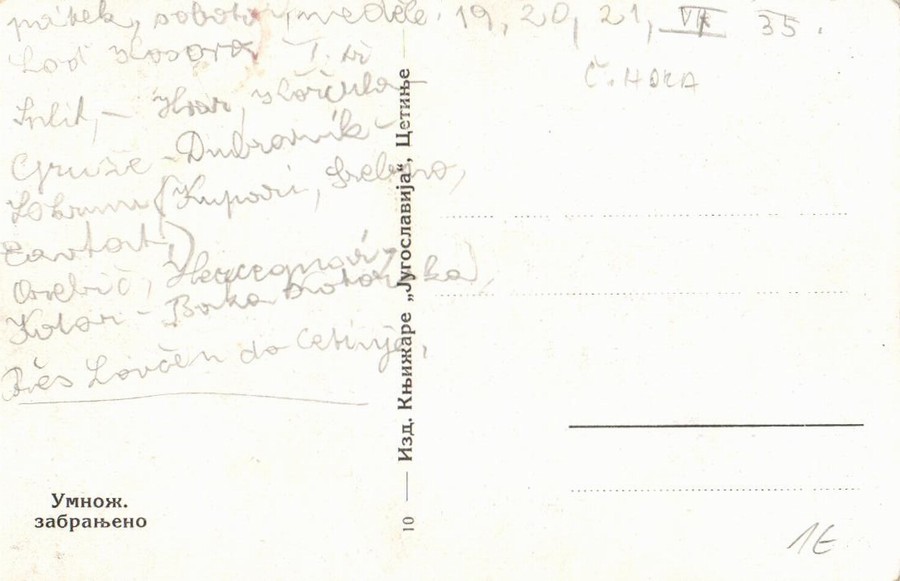 pátek, sobota, neděle. 19, 20, 21, VII 35.
Loď Kosova I. tř
Č. HORA
Split, – Hvar, Korčula
Gruže – Dubrovník –
Lokrum (Kupari, Srebreno,
Cavtat,)
Orebić, Hercegnovi,
Kotor – Boka Kotorska,
Přes Lovčen do Cetinje,
10 — Изд. Књижаре „Југославија“, Цетиње —
Умнож.
забрањено
1E